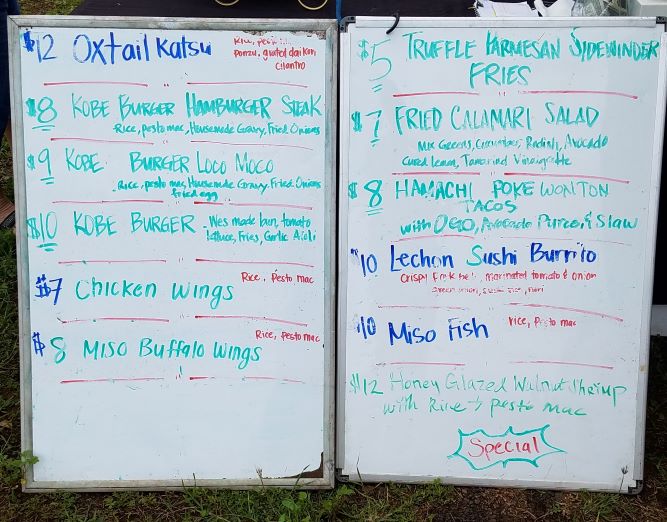 $12 Oxtail Katsu
Rice, pesto
Ponzu, grated daikon
Cilantro
$8 KOBE BURGER HAMBURGER STEAK
Rice, pesto mac, Housemade Gravy, Fried Onions
$9 KOBE BURGER LOCO MOCO
Rice, pesto mac, Housemade Gravy, Fried Onions
fried egg
$10 KOBE BURGER - Wes made bun, tomato
lettuce, Fries, Garlic Aioli
$7 Chicken Wings
Rice, pesto mac
$8 MISO BUFFALO WINGS
Rice, pesto mac
$5 TRUFFLE PARMESAN SIDEWINDER
FRIES
$7 FRIED CALAMARI SALAD
Mix Greens, Cucumber, Radish, Avocado
Cured lemon, Tamarind Vinaigrette
$8 HAMACHI POKE WONTON
TACOS
with OGO, Avocado Puree, & Slaw
$10 Lechon Sushi Burrito
Crispy Pork belly, marinated tomato & onion
Green onion, Sushi rice, Nori
$10 Miso Fish
rice, pesto mac
$12 Honey Glazed Walnut Shrimp
with Rice + pesto mac
Special